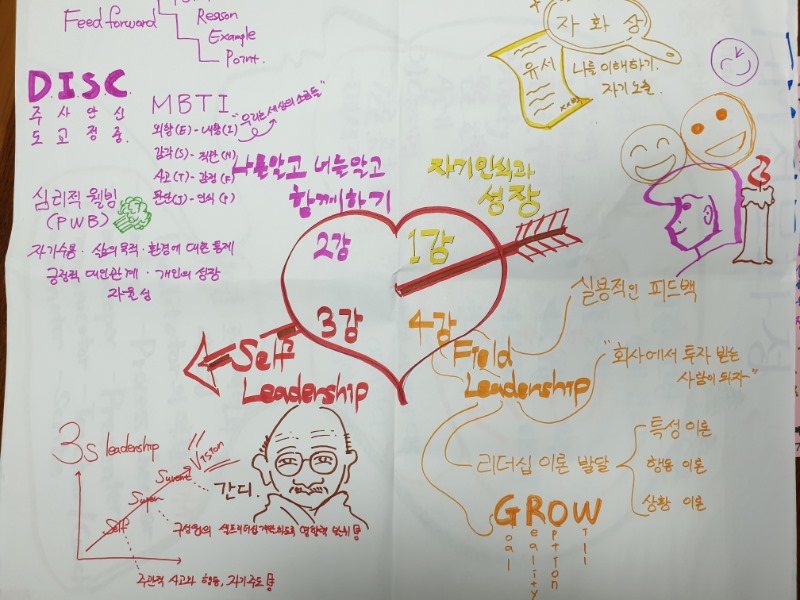 Feed forward
Reason
Example
Point.
D.I.S.C.
주 사 안 신
도 교 정 중.
MBTI
외향(E) - 내향(I)
감각(S) - 직관(N)
사고(T) - 감정(F)
판단(J) - 인식(P)
"우리는 세상의 소금들"
심리적 웰빙
(PWB)
자기수용 · 삶의 목적 · 환경에 대한 통제
긍정적 대인관계 · 개인의 성장
자율성
나를알고 너를알고
함께하기
자화상
유서
나를 이해하기.
자기 노출.
자기인식과
성장
2강
1강
3강
4강
Self
Leadership
Field
Leadership
실용적인 피드백
"회사에서 투자 받는
사람이 되자"
리더십 이론 발달
특성 이론
행동 이론
상황 이론
GROW
Goal
Reality
Option
Will
3s leadership
Vision
Super
Self
간디.
주관적 사고와 행동, 자기주도